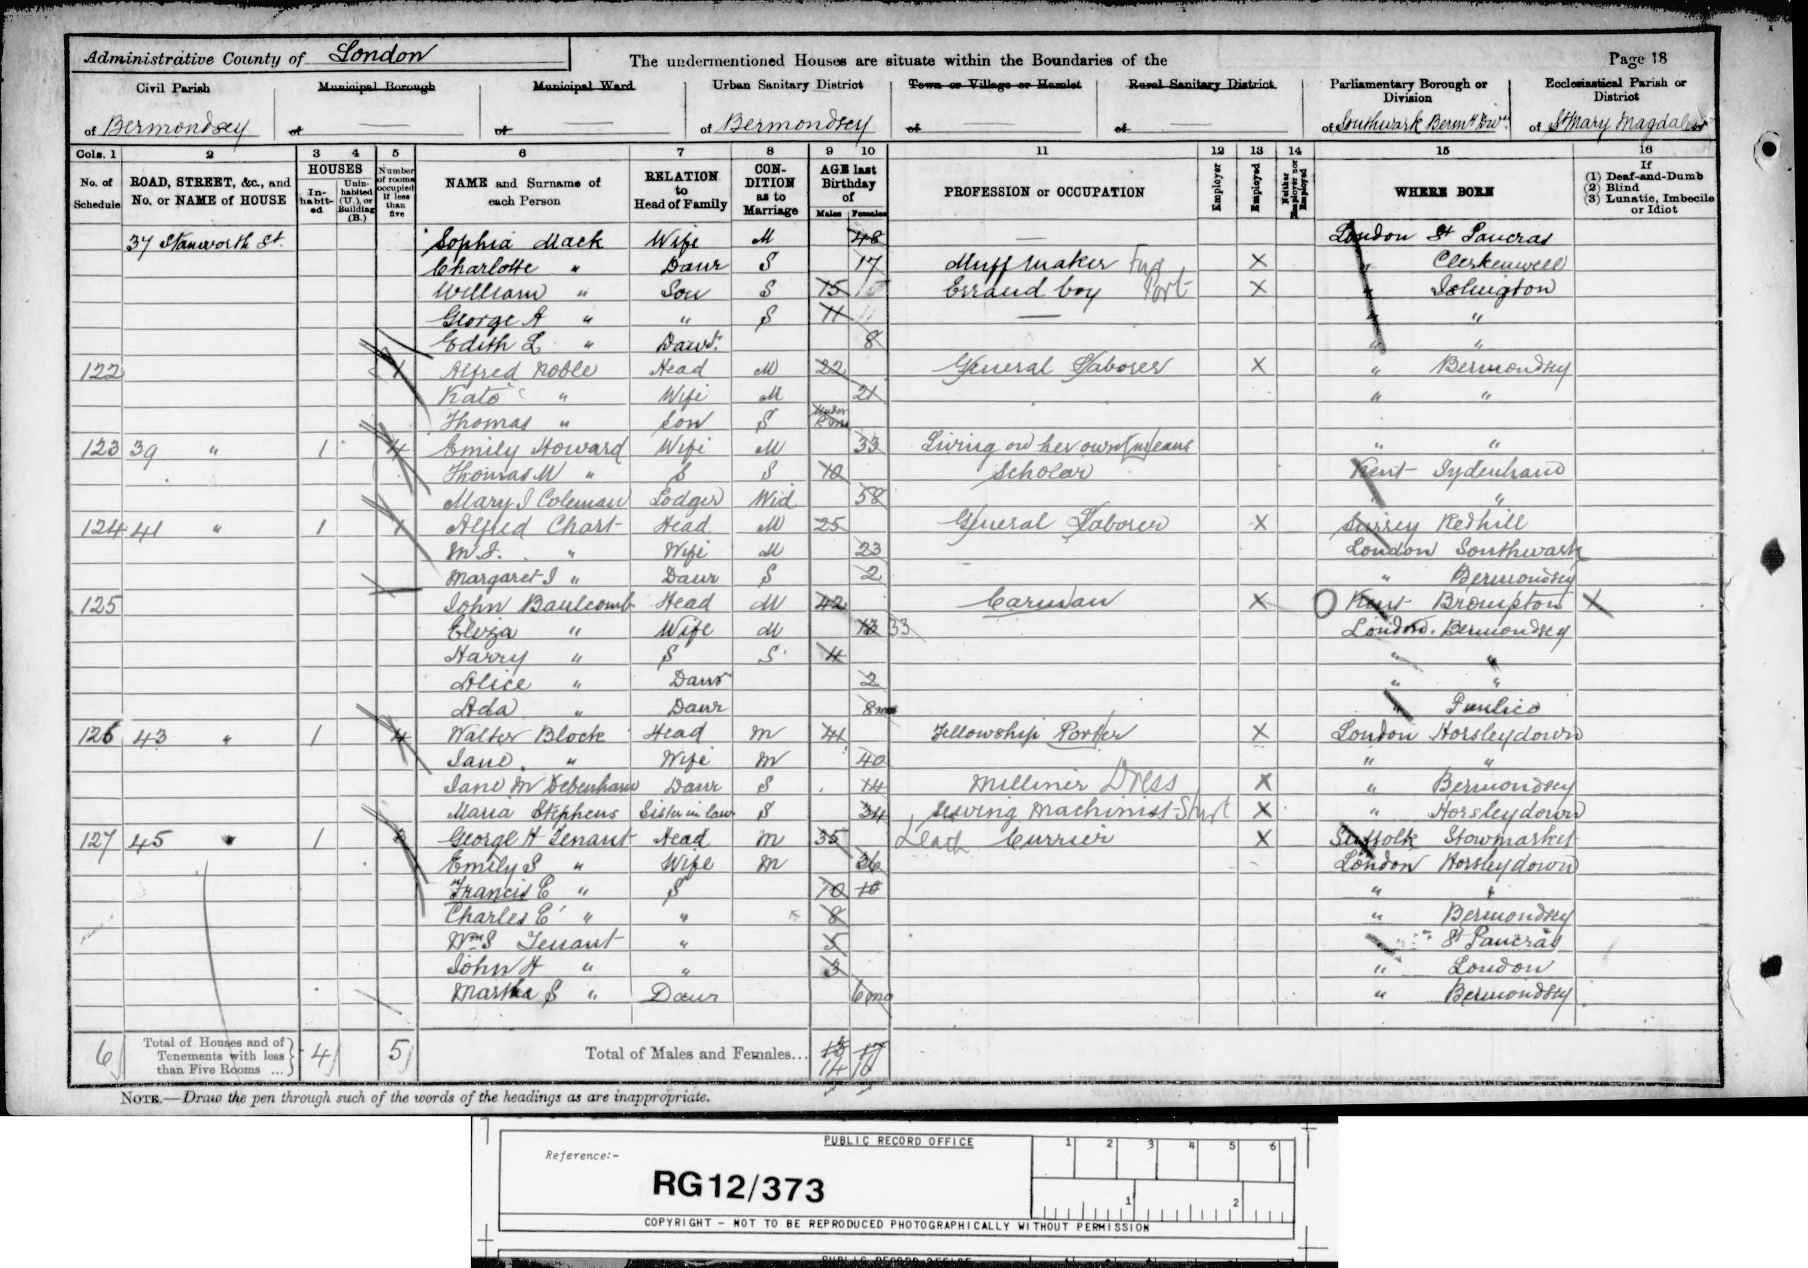 Administrative County of London The undermentioned Houses are situate within the Boundaries of the Page 18
Civil Parish Municipal Borough Municipal Ward Urban Sanitary District Town or Village or Hamlet Rural Sanitary District Parliamentary Borough or Division Ecclesiastical Parish or District
of Bermondsey of — of — of Bermondsey of — of — of Southwark Berm. Divn. of St Mary Magdalen
Cols. 1 2 3 4 5 6 7 8 9 10 11 12 13 14 15 16
No. of Schedule ROAD, STREET, &c., and No. or NAME of HOUSE HOUSES Inhabited Uninhabited (U.), or Building (B.) Number of rooms occupied if less than five NAME and Surname of each Person RELATION to Head of Family CONDITION as to Marriage AGE last Birthday of Males Females PROFESSION or OCCUPATION Employer Employed Neither Employer nor Employed WHERE BORN If (1) Deaf-and-Dumb (2) Blind (3) Lunatic, Imbecile or Idiot
37 Stanworth St. Sophia Mack Wife M 48 — London St Pancras
Charlotte " Daur S 17 Muff Maker Fur X " Clerkenwell
William " Son S 15 Errand boy Port X " Islington
George A " " S 11 — " "
Edith L " Daur. 8 " "
122 1 Alfred Noble Head M 22 General Laborer X " Bermondsey
Kate " Wife M 21 " "
Thomas " Son S Under
123 39 " 1 4 Emily Howard Wife M 33 Living on her own means " "
Thomas W " S S Scholar Kent Sydenham
Mary J Coleman Lodger Wid 58 "
124 41 " 1 1 Alfred Chart Head M 25 General Laborer X Surrey Redhill
M. J. " Wife M 23 London Southwark
Margaret J " Daur S 2 " Bermondsey
125 John Baulcomb Head M 42 Carman X Kent Brompton X
Eliza " Wife M 33 London. Bermondsey
Harry " S S 4 " "
Alice " Daur 2 " "
Ada " Daur 8 mos " Pimlico
126 43 " 1 4 Walter Block Head M 41 Fellowship Porter X London Horsleydown
Jane " Wife M 40 " "
Jane M Debenham Daur S 14 Milliner Dress X " Bermondsey
Maria Stephens Sister in law S 34 Sewing Machinist Shirt X " Horsleydown
127 45 " 1 George H Tenant Head M 35 Leath Currier X Suffolk Stowmarket
Emily S " Wife M 36 London Horsleydown
Francis E " S 10 10 " "
Charles E " " 8 " Bermondsey
Wm S Tenant " 5 " St Pancras
John H " " 3 " London
Martha S " Daur 6 mo " Bermondsey
6 Total of Houses and of Tenements with less than Five Rooms ... 4 5 Total of Males and Females... 14
NOTE.—Draw the pen through such of the words of the headings as are inappropriate.
PUBLIC RECORD OFFICE 1 2 3 4 5 6
Reference:-
RG12/373
1 2
COPYRIGHT - NOT TO BE REPRODUCED PHOTOGRAPHICALLY WITHOUT PERMISSION
PUBLIC RECORD OFFICE